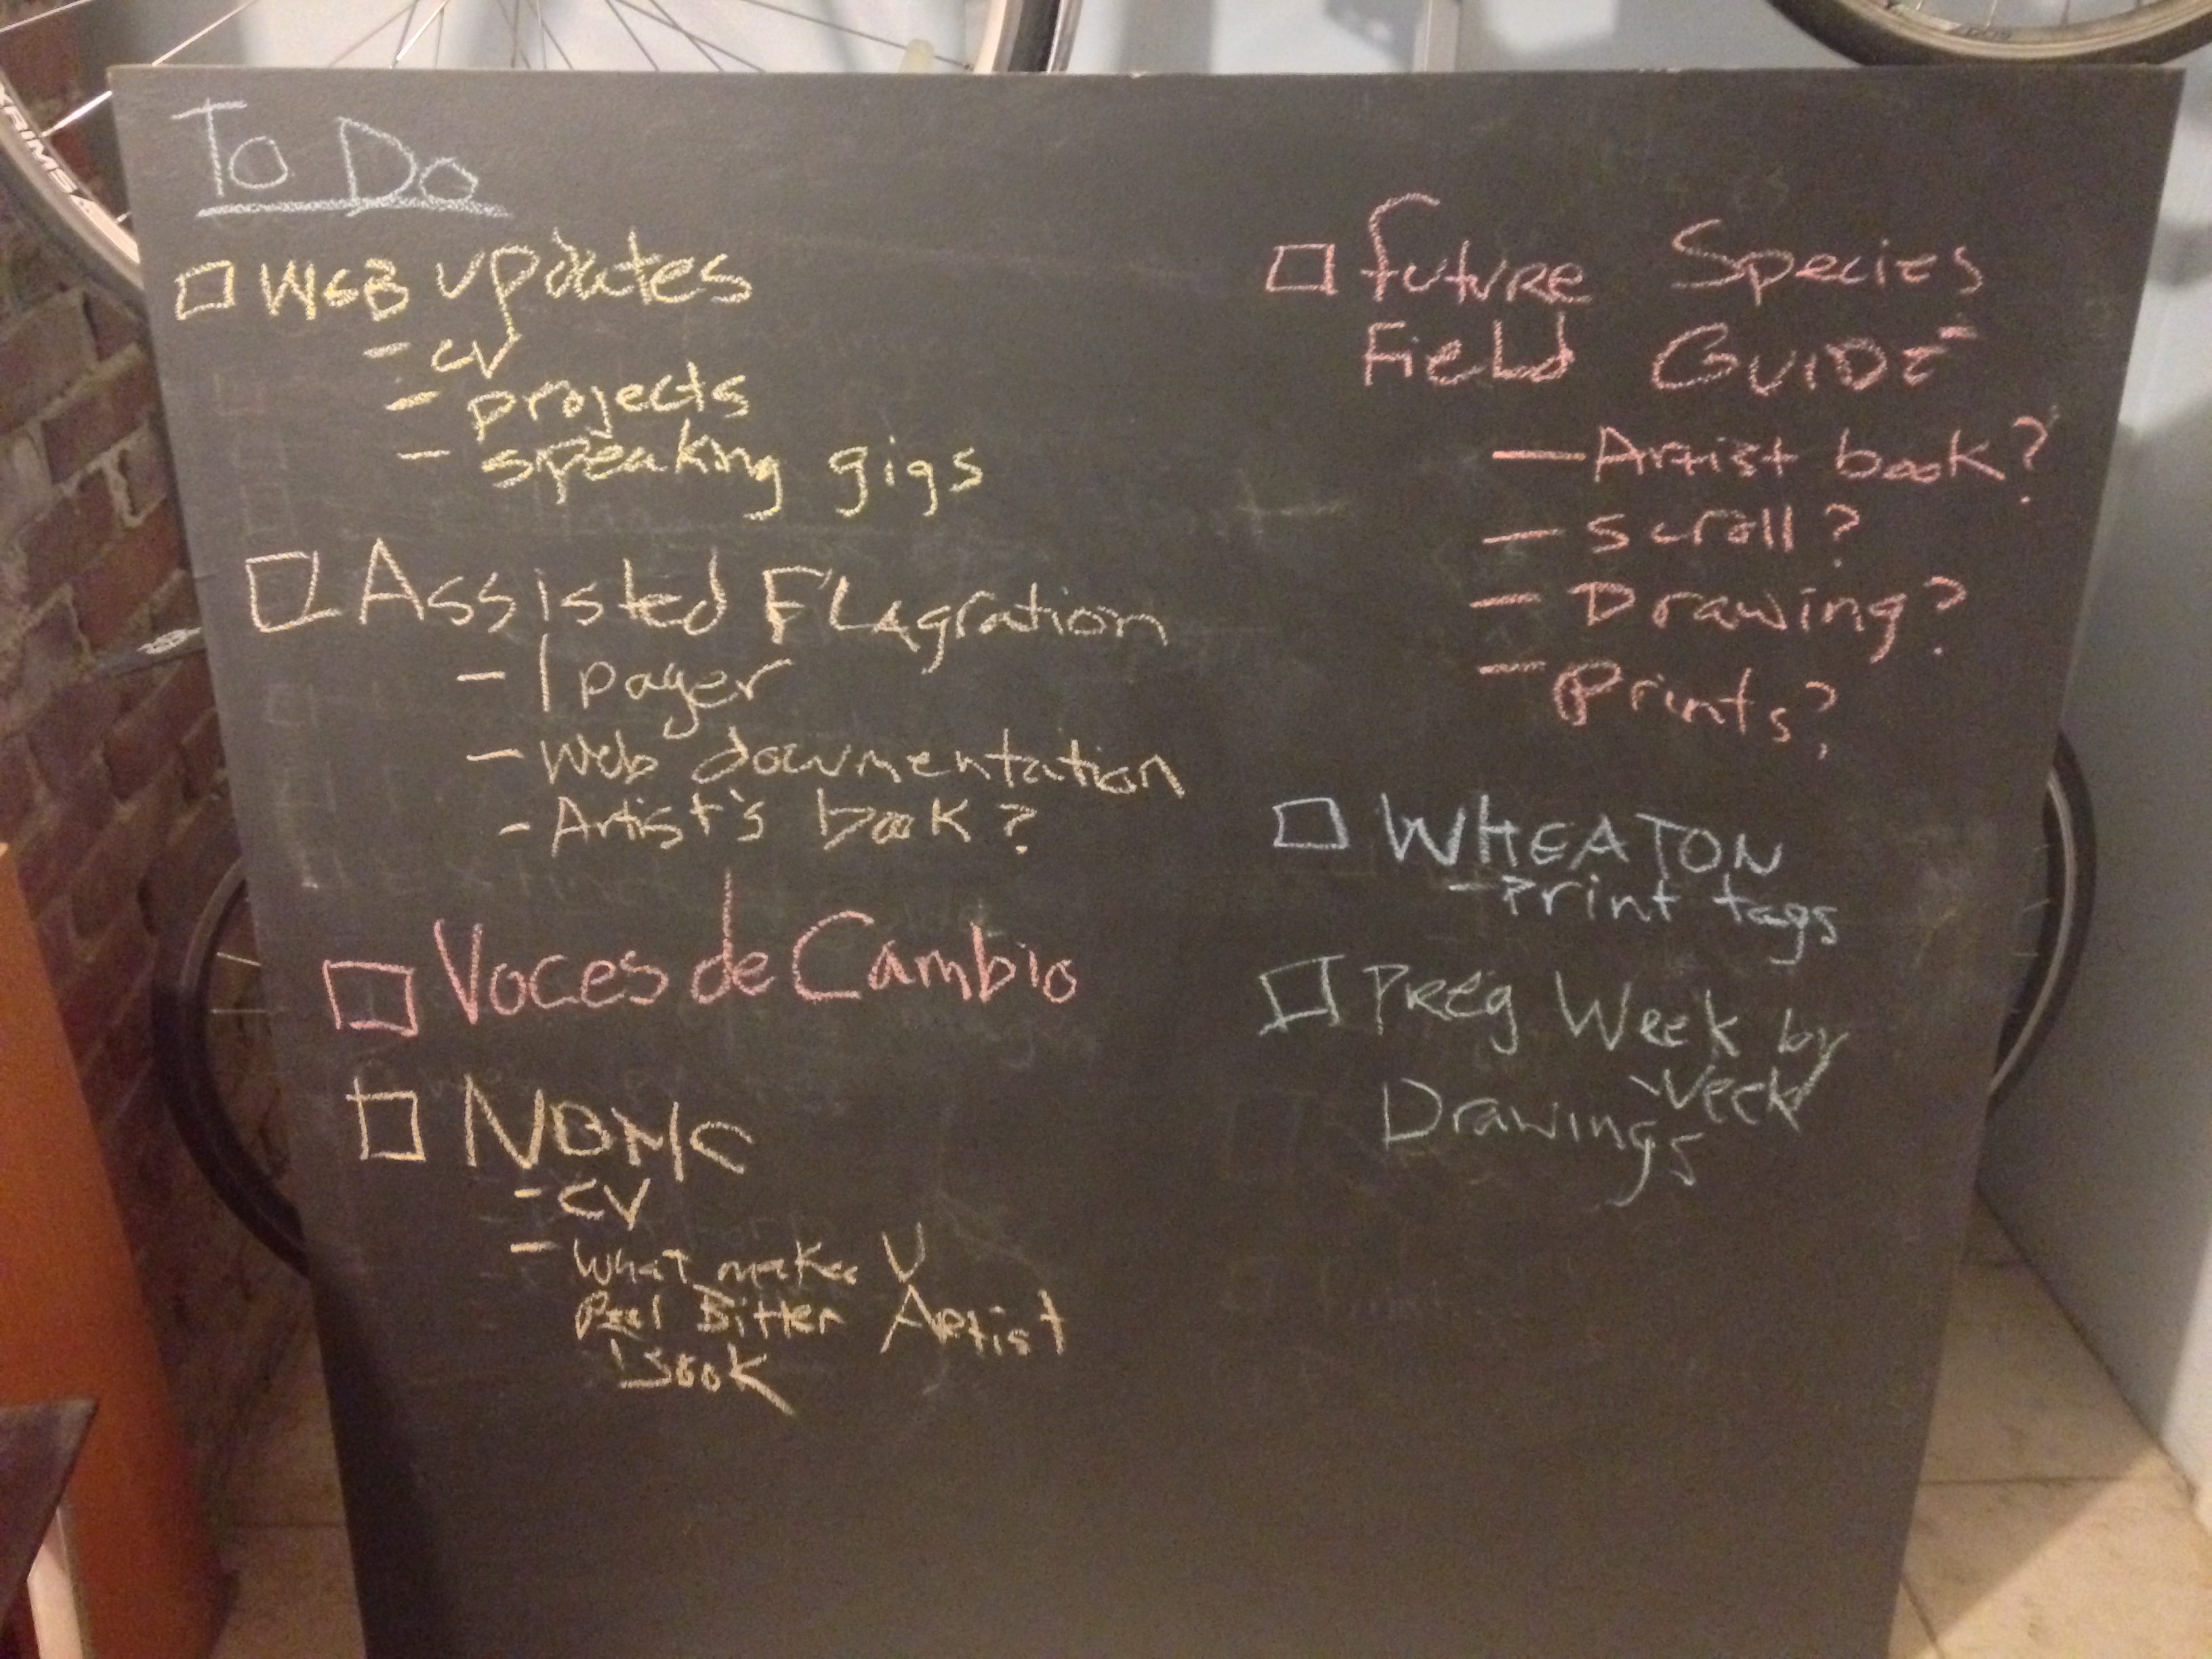 To Do
WEB updates
- CV
- projects
- speaking gigs
Assisted FLagration
- 1 pager
- Web documentation
- Artist's book?
Voces de Cambio
NDMC
- CV
- What makes U
Feel Bitter Artist
Book
Future Species
Field GUIDE
- Artist book?
- Scroll?
- Drawing?
- Prints?
WHEATON
- Print tags
Preg Week by
Week
Drawings